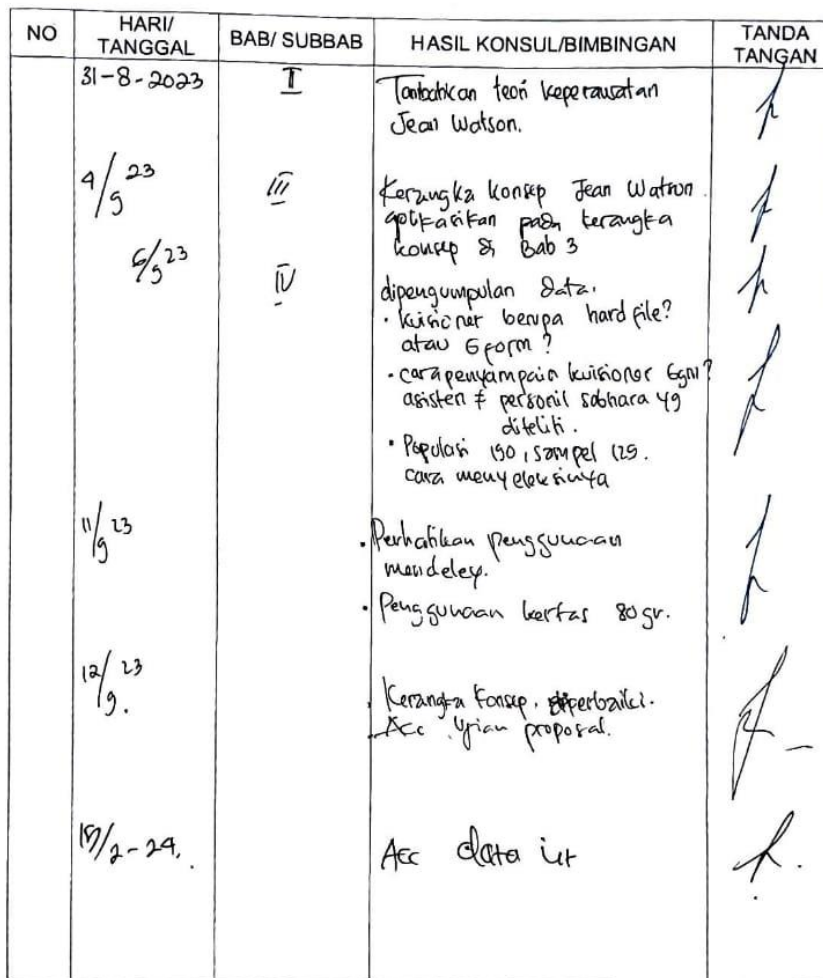 NO HARI/ TANGGAL BAB/ SUBBAB HASIL KONSUL/BIMBINGAN TANDA TANGAN
31-8-2023 II Tambahkan teori keperawatan
Jean Watson.
4/9 23 III Kerangka konsep Jean Watson
aplikasikan pada kerangka
konsep di Bab 3
6/9 23 IV dipengumpulan data.
• kuisioner berupa hard file?
atau G form?
• cara penyampain kuisioner
asisten ≠ personil sabhara yg
diteliti.
• Populasi 190, sampel 129.
cara menyeleksinya
11/9 23 • Perhatikan penggunaan
mendeley.
• Penggunaan kertas 80 gr.
12/9 23 • Kerangka konsep. diperbaiki.
• Acc Ujian proposal.
/2-24. Acc data